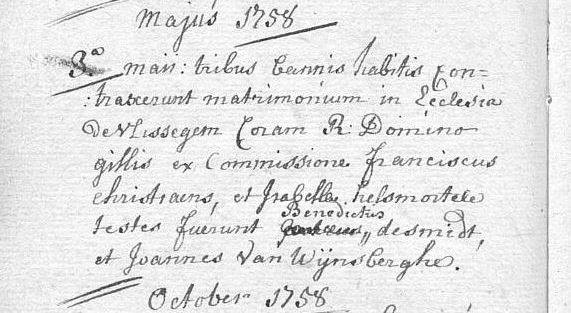 Majus 1758
3ª maii: tribus bannis habitis Con=
:traxerunt matrimonium in Ecclesia
de vlissegem Coram R: Domino
gillis ex Commissione franciscus
christiaens, et Isabelle helsmortele
Benedictus
testes fuerunt desmedt,
et Joannes Van Wijnsberghe.
October 1758